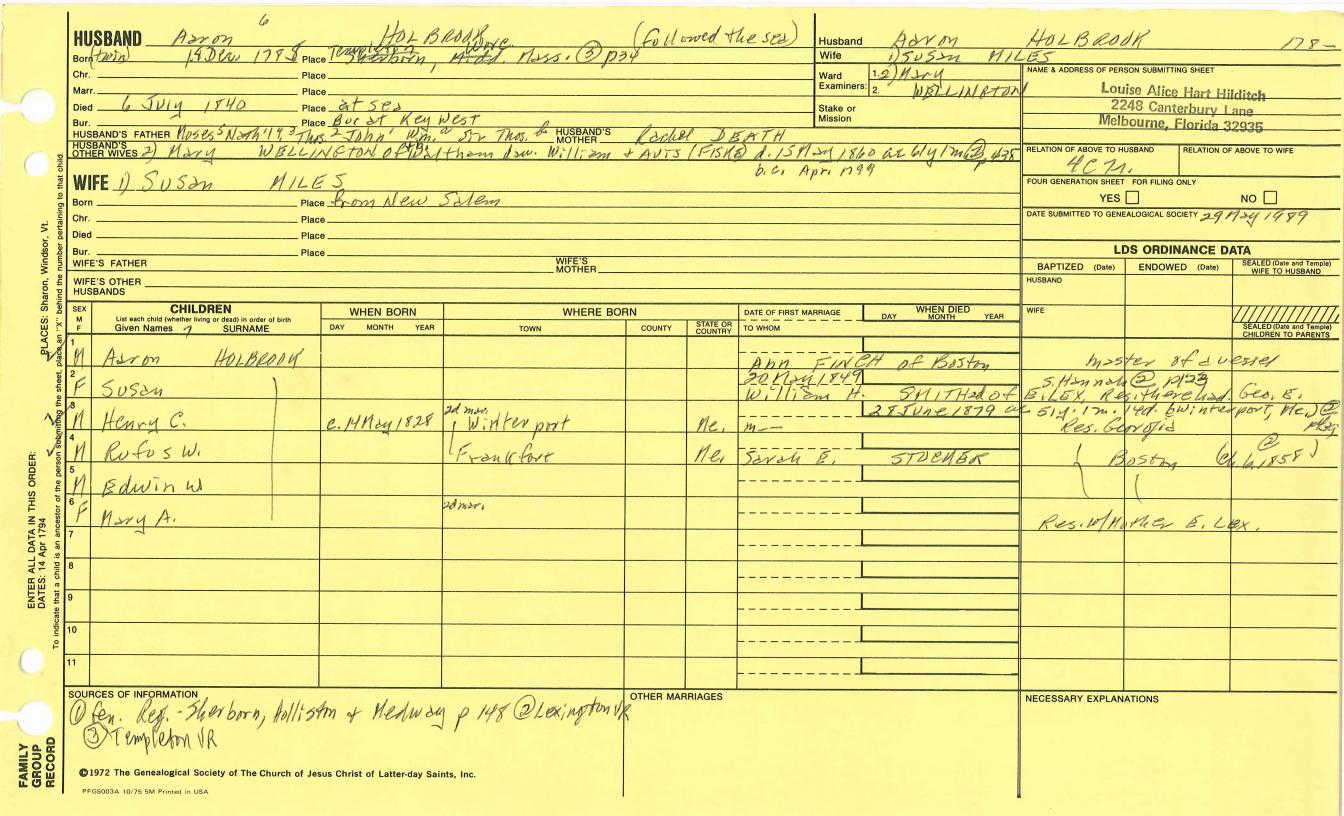 6
HUSBAND Aaron HOLBROOK (followed the sea)
Born (twin) 18 Dec 1788 Place Templeton, Worc. Sherborn, Midd. Mass. ③ p34
Chr. Place
Marr. Place
Died 6 July 1840 Place at sea
Bur. Place Bur at Key West
HUSBAND'S FATHER Moses⁵ Nath'l⁴, ³ Thos.² John¹ Wm.ᵃ Sir Thos.ᵇ HUSBAND'S MOTHER Rachel DEATH
HUSBAND'S OTHER WIVES 2) Mary WELLINGTON of Waltham dau. William & AVIS (FISKE) d. 15 May 1860 ae 61y 1m ② p 438
b.c. Apr. 1799
WIFE 1) Susan MILES
Born Place from New Salem
Chr. Place
Died Place
Bur. Place
WIFE'S FATHER WIFE'S MOTHER
WIFE'S OTHER HUSBANDS
Husband Aaron HOLBROOK 178-
Wife 1) Susan MILES
Ward Examiners: 1. 2) Mary
2. WELLINGTON
Stake or Mission
NAME & ADDRESS OF PERSON SUBMITTING SHEET
Louise Alice Hart Hilditch
2248 Canterbury Lane
Melbourne, Florida 32935
RELATION OF ABOVE TO HUSBAND RELATION OF ABOVE TO WIFE
4C
FOUR GENERATION SHEET FOR FILING ONLY
YES NO
DATE SUBMITTED TO GENEALOGICAL SOCIETY 29 May 1989
LDS ORDINANCE DATA
BAPTIZED (Date) ENDOWED (Date) SEALED (Date and Temple) WIFE TO HUSBAND
HUSBAND
WIFE
SEALED (Date and Temple) CHILDREN TO PARENTS
SEX M F CHILDREN WHEN BORN WHERE BORN DATE OF FIRST MARRIAGE WHEN DIED
List each child (whether living or dead) in order of birth
Given Names 7 SURNAME DAY MONTH YEAR TOWN COUNTY STATE OR COUNTRY TO WHOM DAY MONTH YEAR
1 M Aaron HOLBROOK Ann FINCH of Boston master of a vessel
2 F Susan 20 May 1849 S. Hannah ② p123
William H. SMITH of E. LEX. Res. there had Geo. E.
3 M Henry C. c. 14 May 1828 2d mar. Winterport Me. m— 28 June 1879 ae 51y. 1m. 14d. b Winterport, Me.) ②
Res. Georgia
4 M Rufus W. Frankfort Me. Sarah E. STOCKER Boston (ch. b. 1858) ②
5 M Edwin W
6 F Mary A. 2d mar. Res. w/Mother E. Lex.
7
8
9
10
11
SOURCES OF INFORMATION
① Gen. Reg. - Sherborn, Holliston & Medway p 148 ② Lexington VR
③ Templeton VR
OTHER MARRIAGES
NECESSARY EXPLANATIONS
©1972 The Genealogical Society of The Church of Jesus Christ of Latter-day Saints, Inc.
PFGS003A 10/75 5M Printed in USA
FAMILY GROUP RECORD
ENTER ALL DATA IN THIS ORDER:
DATES: 14 Apr 1794 PLACES: Sharon, Windsor, Vt.
To indicate that a child is an ancestor of the person submitting the sheet, place an "X" behind the number pertaining to that child